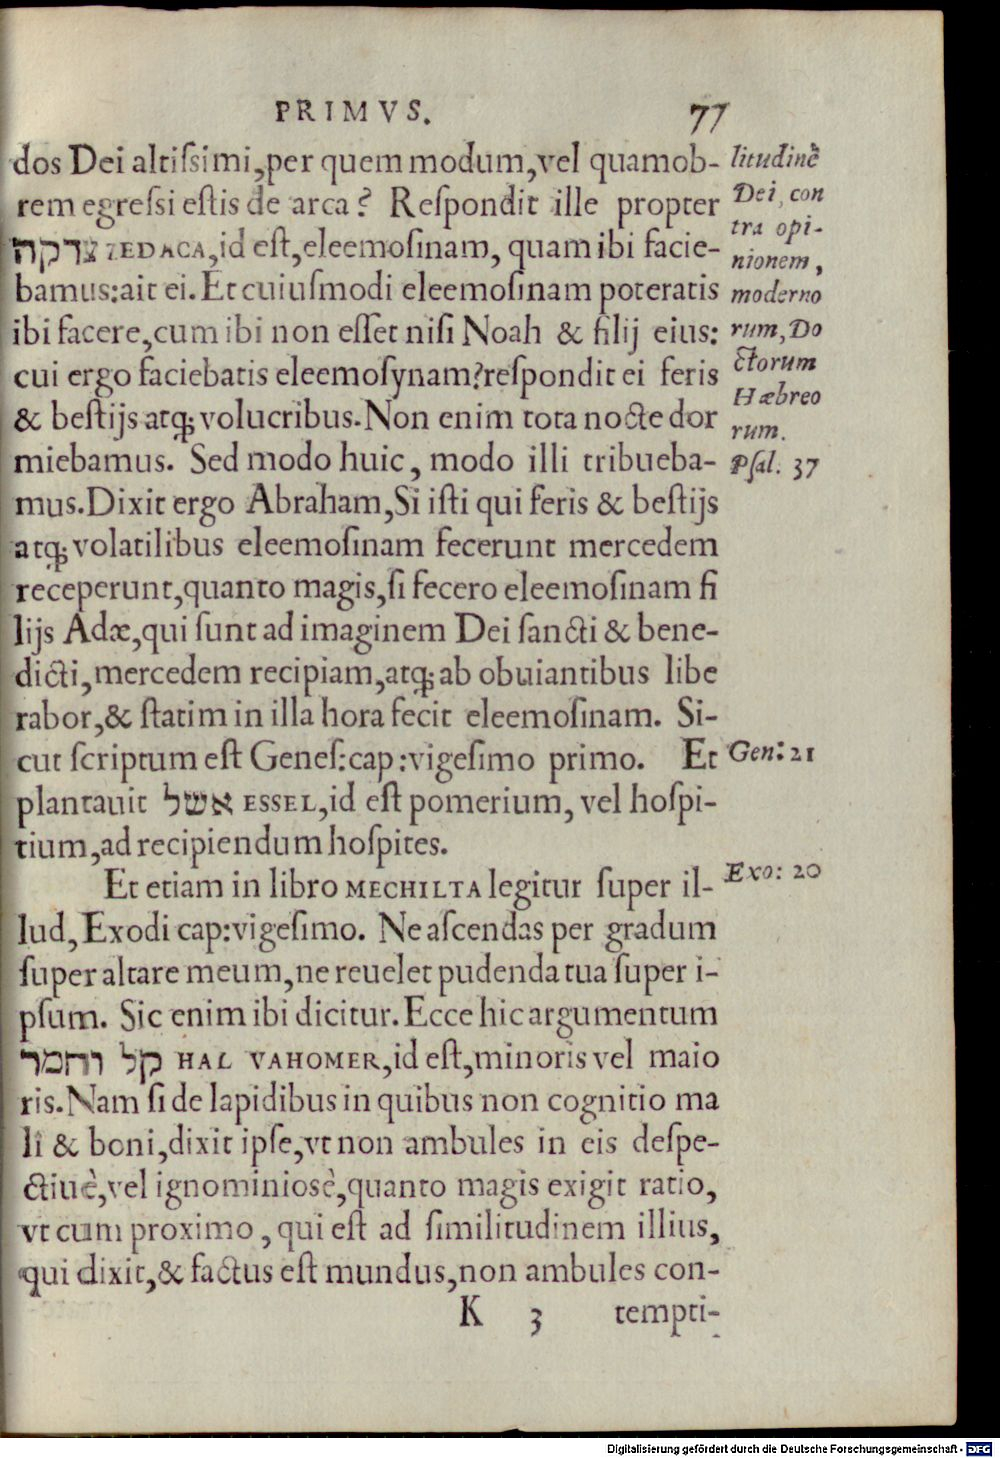 PRIMVS. 77
dos Dei altiſsimi,per quem modum,vel quamob-
rem egreſsi eſtis de arca? Reſpondit ille propter
צדקה ZEDACA,id eſt,eleemoſinam, quam ibi facie-
bamus:ait ei. Et cuiuſmodi eleemoſinam poteratis
ibi facere,cum ibi non eſſet niſi Noah & filij eius:
cui ergo faciebatis eleemoſynam?reſpondit ei feris
& beſtijs atq; volucribus. Non enim tota nocte dor
miebamus. Sed modo huic, modo illi tribueba-
mus. Dixit ergo Abraham, Si iſti qui feris & beſtijs
atq; volatilibus eleemoſinam fecerunt mercedem
receperunt,quanto magis,ſi fecero eleemoſinam fi
lijs Adæ,qui ſunt ad imaginem Dei ſancti & bene-
dicti,mercedem recipiam,atq; ab obuiantibus libe
rabor,& ſtatim in illa hora fecit eleemoſinam. Si-
cut ſcriptum eſt Geneſ:cap:vigeſimo primo. Et
plantauit אשל ESSEL,id eſt pomerium, vel hoſpi-
tium,ad recipiendum hoſpites.
Et etiam in libro MECHILTA legitur ſuper il-
lud, Exodi cap:vigeſimo. Ne aſcendas per gradum
ſuper altare meum,ne reuelet pudenda tua ſuper i-
pſum. Sic enim ibi dicitur. Ecce hic argumentum
קל וחמר HAL VAHOMER,id eſt,minoris vel maio
ris. Nam ſi de lapidibus in quibus non cognitio ma
li & boni,dixit ipſe,vt non ambules in eis deſpe-
ctiuè,vel ignominiosè,quanto magis exigit ratio,
vt cum proximo, qui eſt ad ſimilitudinem illius,
qui dixit,& factus eſt mundus,non ambules con-
K 3 tempti-
litudinẽ
Dei, con
tra opi-
nionem,
moderno
rum, Do
ctorum
Hæbreo
rum.
Pſal. 37
Gen: 21
Exo: 20
Digitalisierung gefördert durch die Deutsche Forschungsgemeinschaft - DFG